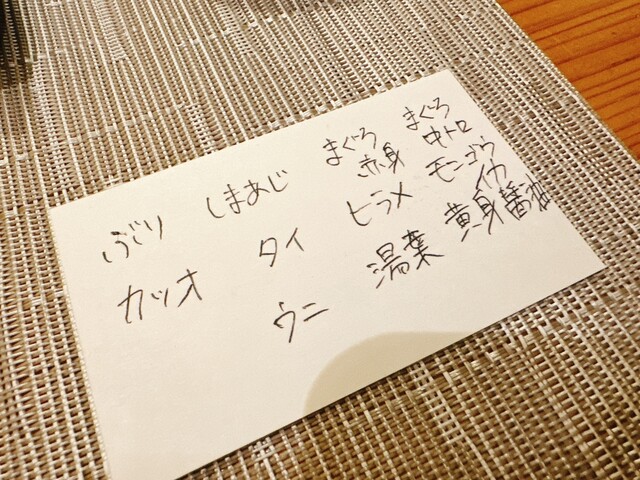 ぶり しまあじ まぐろ赤身 まぐろ中トロ
カツオ タイ ヒラメ モンゴウイカ
ウニ 湯葉 黄身醤油